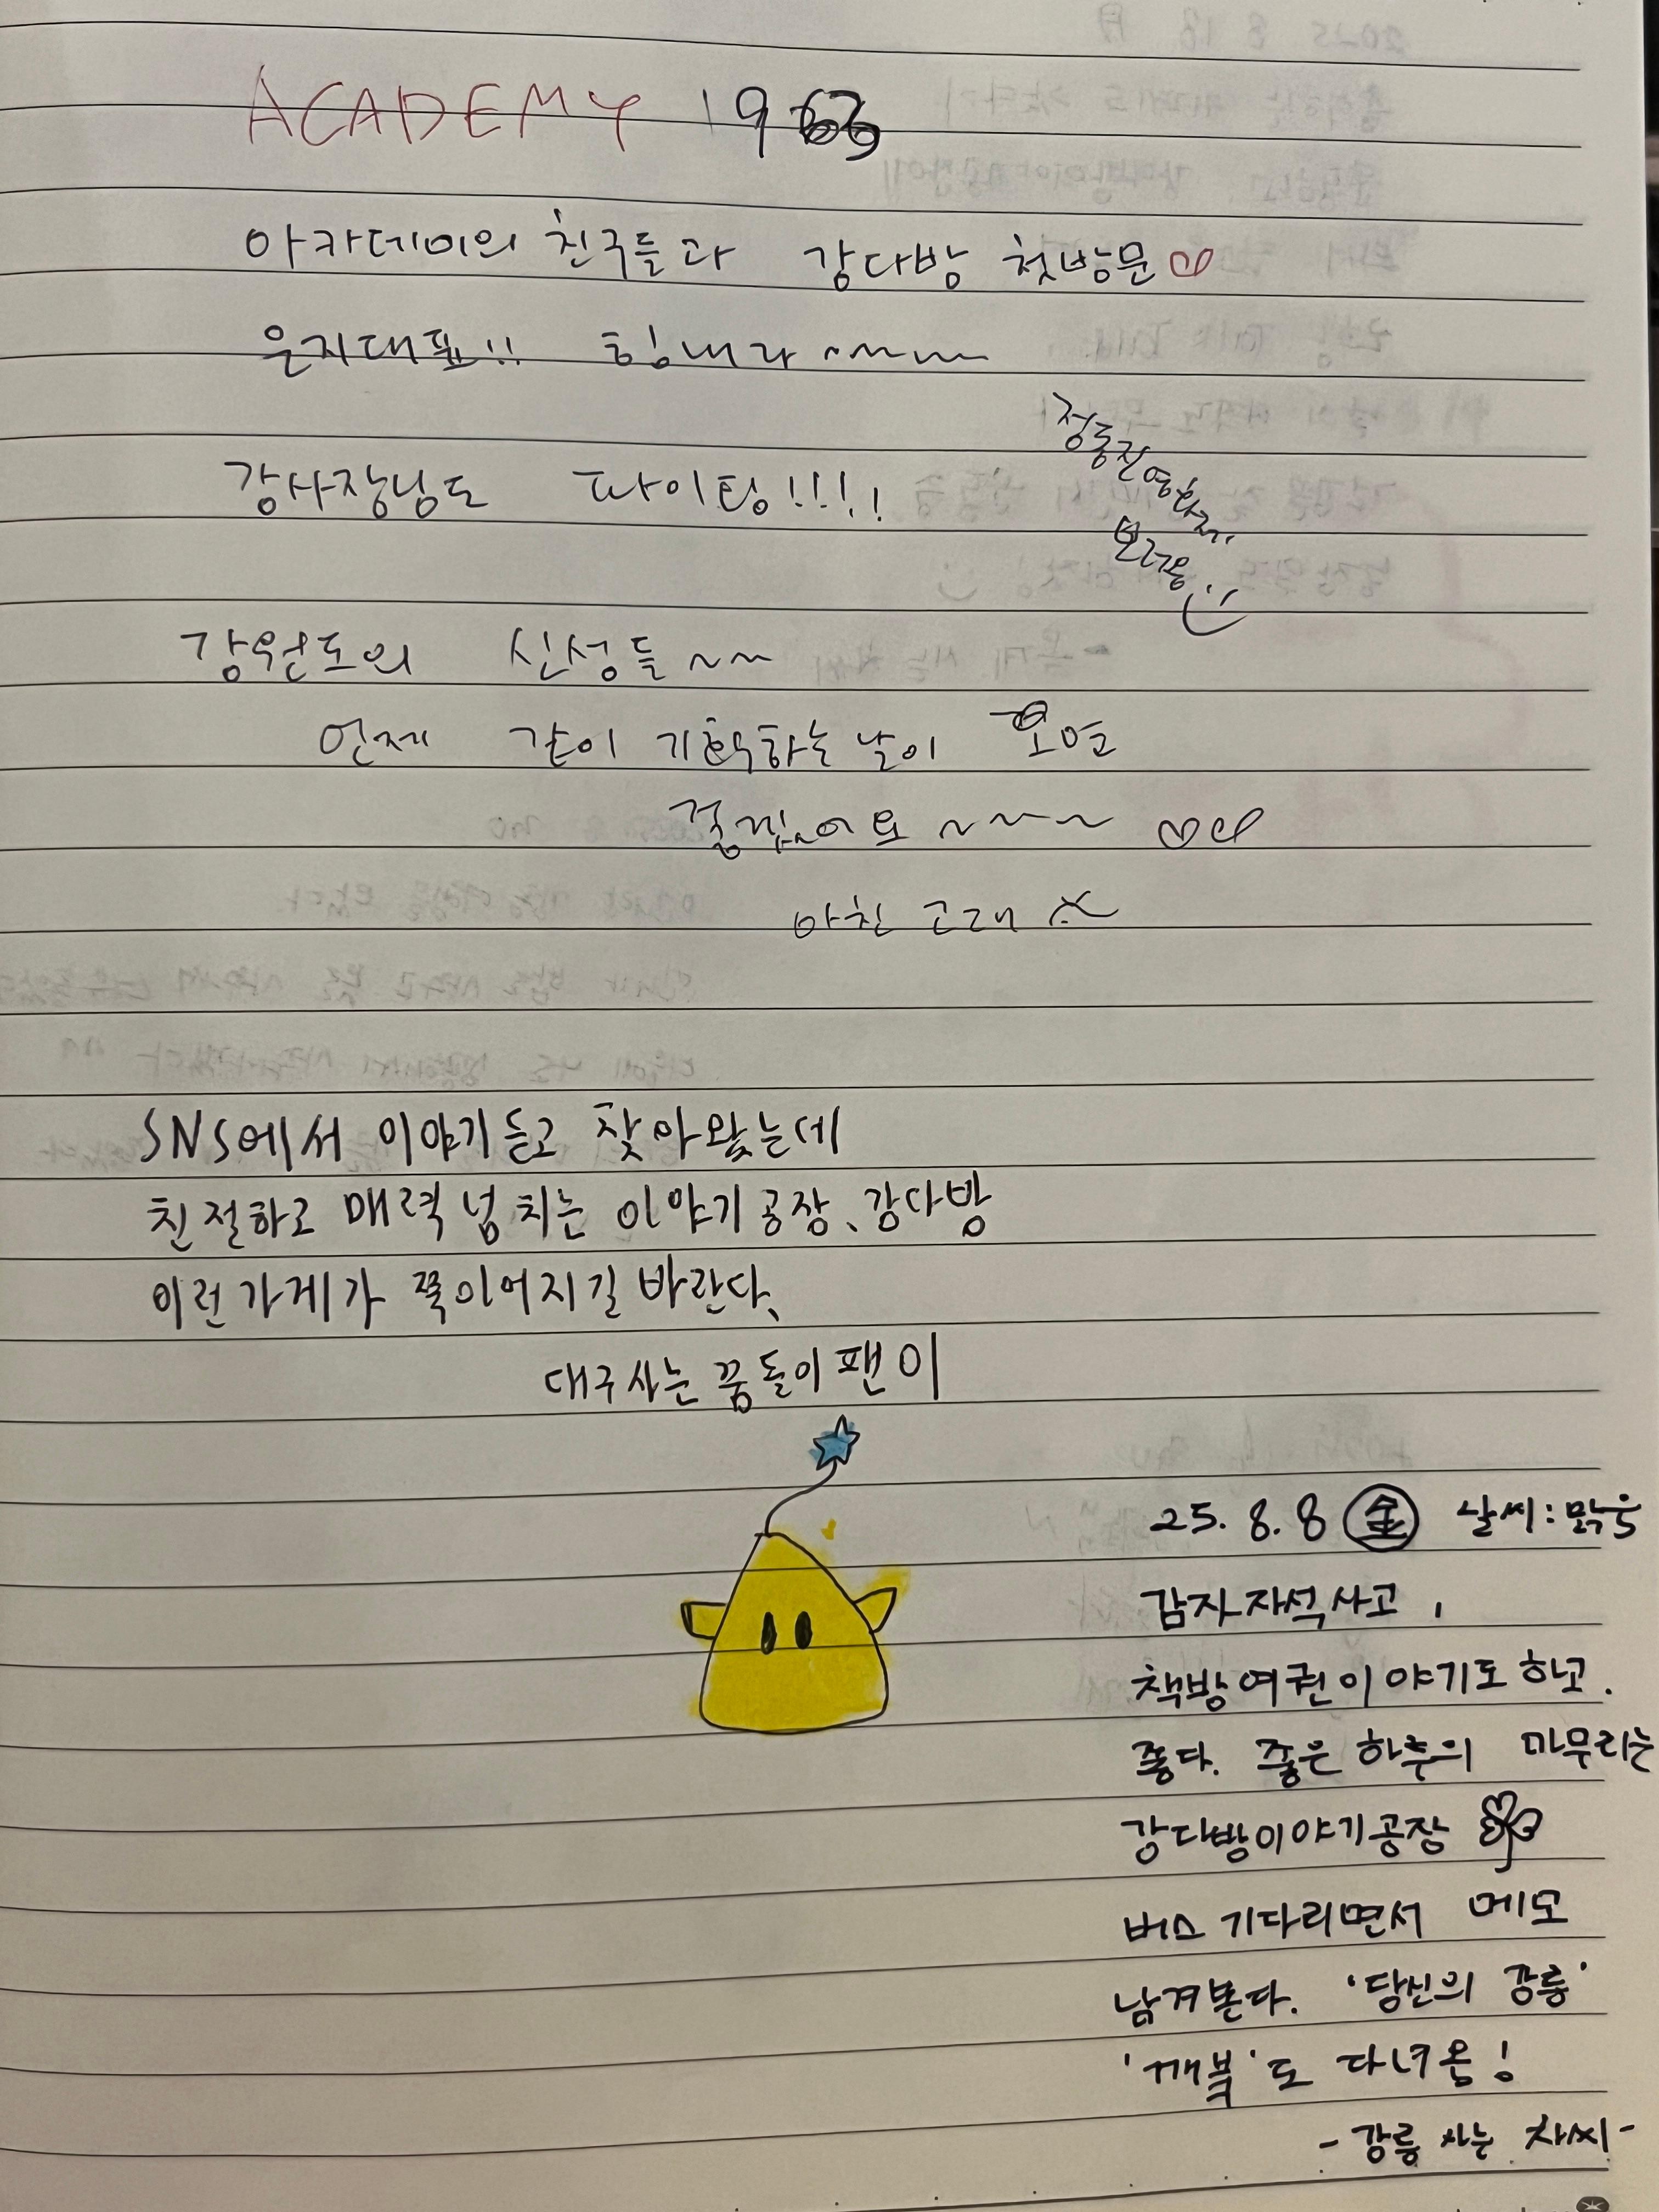 ACADEMY 1963
아카데미의 친구들과 강다방 첫방문
은지대표!! 힘내라~~~
강사장님도 파이팅!!!!
정동진영화제
강원도의 신성들~~
언제 같이 기획하는 날이 오면
좋겠어요~~~~
아친 고래
SNS에서 이야기듣고 찾아왔는데
친절하고 매력 넘치는 이야기공장、강다방
이런가게가 쭉이어지길 바란다、
대구사는 꿈돌이팬이
25. 8. 8 金 날씨: 맑음
감자자석사고,
책방여권이야기도하고.
좋다. 좋은 하루의 마무리는
강다방이야기공장
버스 기다리면서 메모
남겨본다. '당신의 강릉'
'깨북'도 다녀옴!
- 강릉 사는 차씨 -